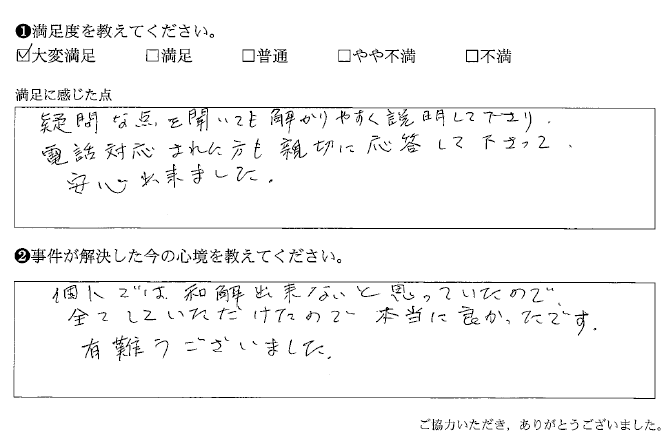 ❶満足度を教えてください。
☑大変満足 □満足 □普通 □やや不満 □不満
満足に感じた点
疑問な点を聞いても解かりやすく説明して下さり、
電話対応された方も親切に応答して下さって、
安心出来ました。
❷事件が解決した今の心境を教えてください。
個人では和解出来ないと思っていたので、
全てしていただけたので本当に良かったです。
有難うございました。
ご協力いただき，ありがとうございました。